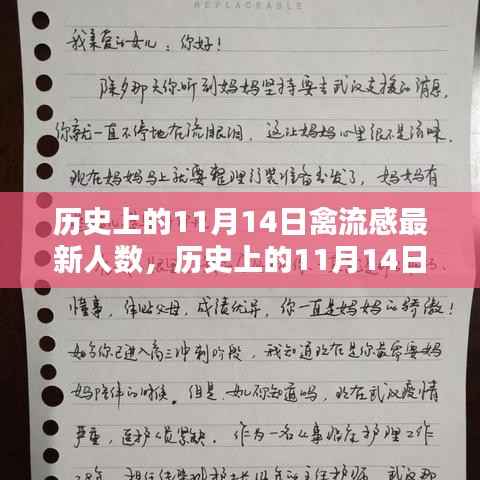 REPLACEABLE
我亲爱的女儿：你好！
除夕那天你听到妈妈坚持要去武汉支援的消息，
你就一直不停地在流眼泪，这让妈妈心里很不是滋味。
现在妈妈马上就要整理行装准备出发了，妈妈有
历史上的11月14日禽流感最
新人数，历史上的11月14日
懂事，体贴父母，成绩优异，你一直是妈妈的骄傲！
如今你已进入高三冲刺阶段，我知道现在是你最需要妈
妈陪伴的时候。但是，女儿你知道吗，现在武汉疫情
严重，医护人员紧缺。作为一名从事临床护理工作